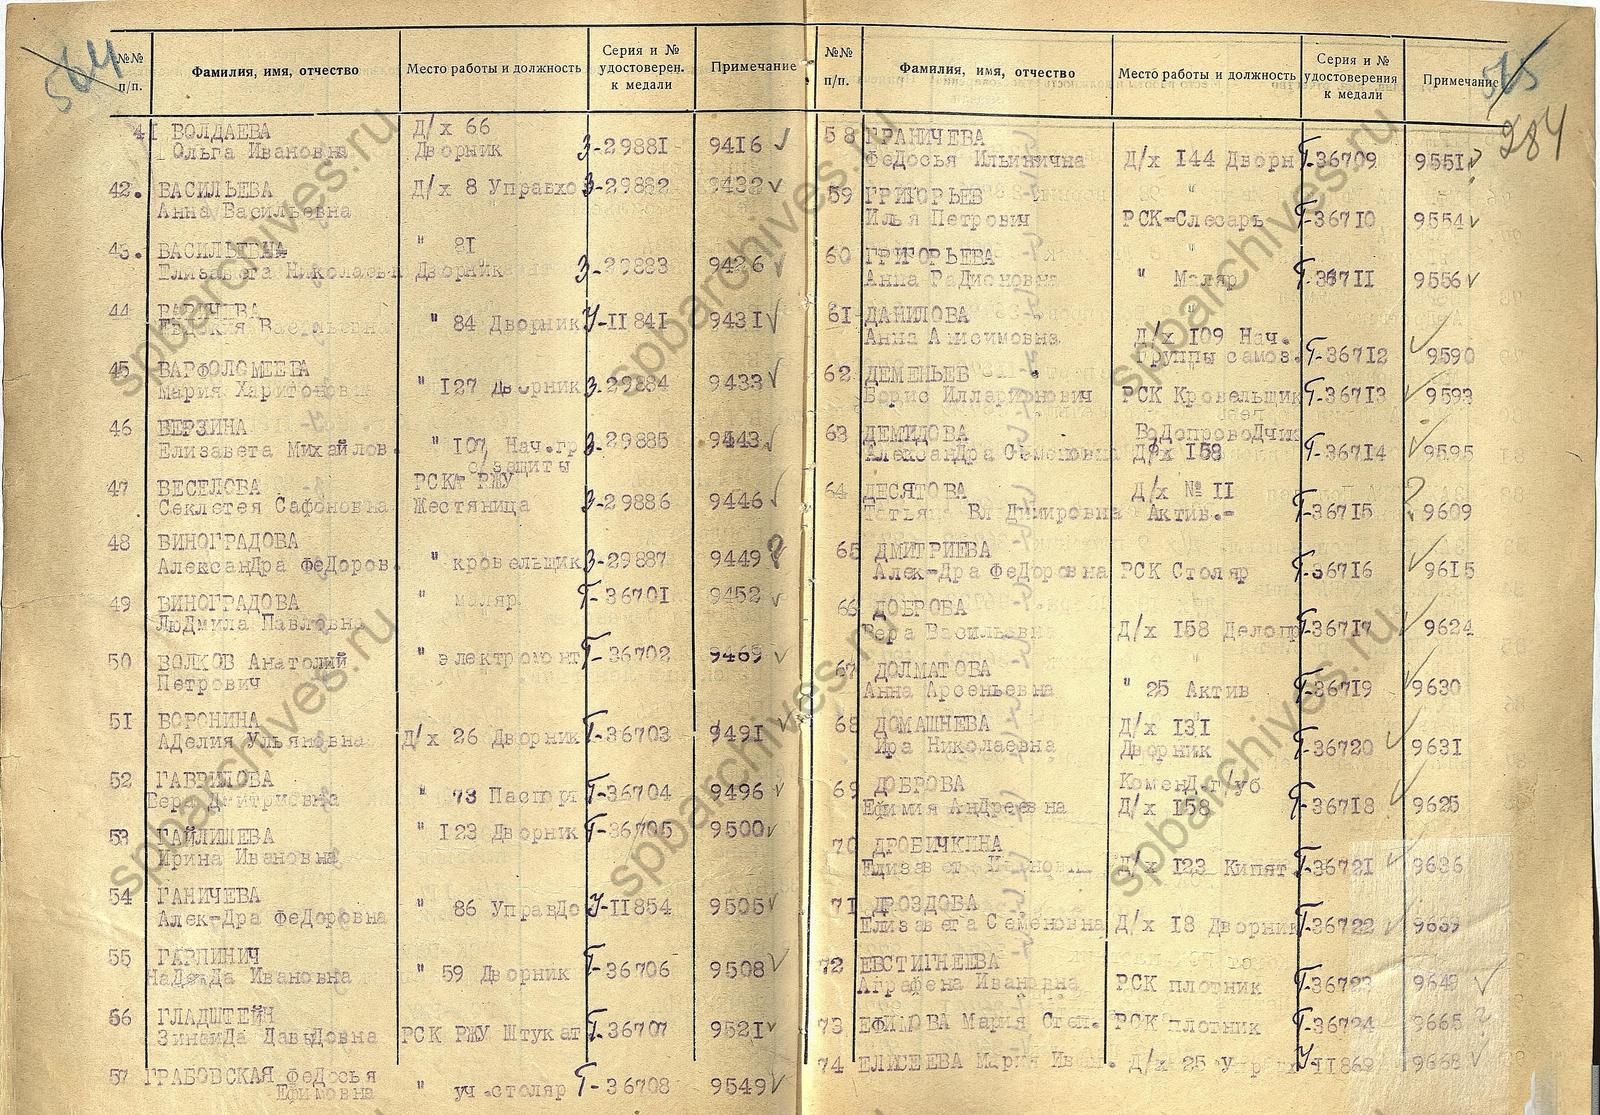 564
№№ п/п.
Фамилия, имя, отчество
Место работы и должность
Серия и № удостоверен. к медали
Примечание
41 ВОЛДАЕВА Д/х 66
Ольга Ивановна Дворник З-29881 9416 ✓
42. ВАСИЛЬЕВА Д/х 8 Управхо З-29882 9432 ✓
Анна Васильевна
43. ВАСИЛЬЕВА " 81
Елизавета Николаевн Дворник З-29883 9426 ✓
44
Евдокия Васильевна " 84 Дворник У-II841 9431 ✓
45 ВАРФОЛОМЕЕВА
Мария Харитоновн " 127 Дворник З-29884 9433 ✓
46 ВЕРЗИНА
Елизавета Михайлов. " 107 Нач.гр З-29885 9443 ✓
с/защиты
47 ВЕСЕЛОВА РСК РЖУ
Секлетея Сафоновна Жестяница З-29886 9446 ✓
48 ВИНОГРАДОВА
Александра Федоров. " кровельщик З-29887 9449 ?
49 ВИНОГРАДОВА " маляр Т-36701 9452 ✓
Людмила Павловна
50 ВОЛКОВ Анатолий " электромонт Т-36702 9469 ✓
Петрович
51 ВОРОНИНА
Аделия Ульяновна Д/х 26 Дворник Т-36703 9491 ✓
52 ГАВРИЛОВА
Вера Дмитриевна " 73 Паспорт Т-36704 9496 ✓
53 ГАЙЛИШЕВА " 123 Дворник Т-36705 9500 ✓
Ирина Ивановна
54 ГАНИЧЕВА
Алек-Дра Федоровна " 86 УправДо У-II854 9505 ✓
55 ГАРПИНИЧ
Надежда Ивановна " 59 Дворник Т-36706 9508 ✓
56 ГЛАДШТЕЙН
Зинаида Давыдовна РСК РЖУ Штукат Т-36707 9521 ✓
57 ГРАБОВСКАЯ Федосья
Ефимовна " уч.столяр Т-36708 9549 ✓
575
284
№№ п/п.
Фамилия, имя, отчество
Место работы и должность
Серия и № удостоверения к медали
Примечание
58 ГРАНИЧЕВА
Федосья Ильинична Д/х 144 Дворн Т-36709 9551 ?
59 ГРИГОРЬЕВ "
Илья Петрович РСК-Слесарь Т-36710 9554 ✓
60 ГРИГОРЬЕВА "
Анна Радионовна " Маляр Т-36711 9556 ✓
61 ДАНИЛОВА
Анна Анисимовна Д/х 109 Нач.
Группы самоз. Т-36712 ✓ 9590
62 ДЕМЕНЬЕВ
Борис Илларионович РСК Кровельщик Т-36713 ✓ 9593
63 ДЕМИДОВА Водопроводчик
Александра Семеновна Д/х 158 Т-36714 ✓ 9595
64 ДЕСЯТОВА Д/х № II
Татьян Владимировна Актив.- Т-36715 ? 9609
65 ДМИТРИЕВА
Алек-Дра Федоровна РСК Столяр Т-36716 ✓ 9615
66 ДОБРОВА
Вера Васильевна Д/х 158 Делопр Т-36717 ✓ 9624
67 ДОЛМАТОВА
Анна Арсеньевна " 25 Актив Т-36719 ✓ 9630
68 ДОМАШНЕВА Д/х 131
Ира Николаевна Дворник Т-36720 ✓ 9631
69 ДОБРОВА Коменд.г/уб
Ефимия Андреевна Д/х 158 Т-36718 ✓ 9625
70 ДРОБИЧКИНА
Елизавет Ивановн Д/х 123 Кипят Т-36721 ✓ 9636
71 ДРОЗДОВА
Елизавега Семеновна Д/х 18 Дворник Т-36722 ✓ 9639
72 ЕВСТИГНЕЕВА
Аграфена Ивановна РСК плотник Т-36723 9649 ✓
73 ЕФИМОВА Мария Степ. РСК плотник Т-36724 9665 ?
74 ЕЛИСЕЕВА Мария Иван. Д/х 25 Управх У-II869 9668 ✓
spbarchives.ru
spbarchives.ru
spbarchives.ru
spbarchives.ru
spbarchives.ru
spbarchives.ru